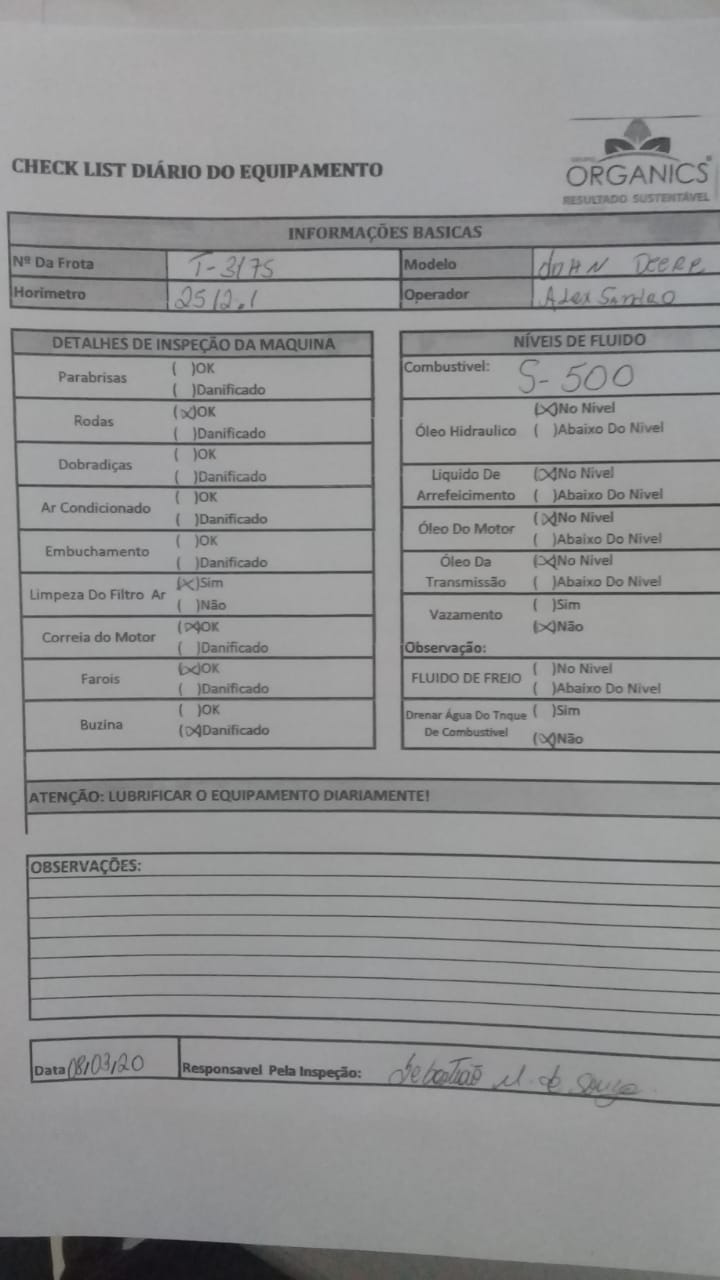 CHECK LIST DIÁRIO DO EQUIPAMENTO
GRUPO
ORGANICS
RESULTADO SUSTENTÁVEL
INFORMAÇÕES BASICAS
Nº Da Frota T-3175 Modelo JOHN DEERE
Horimetro 2512.1 Operador Alex
DETALHES DE INSPEÇÃO DA MAQUINA
Parabrisas ( )OK
( )Danificado
Rodas (X)OK
( )Danificado
Dobradiças ( )OK
( )Danificado
Ar Condicionado ( )OK
( )Danificado
Embuchamento ( )OK
( )Danificado
Limpeza Do Filtro Ar (X)Sim
( )Não
Correia do Motor (X)OK
( )Danificado
Farois (X)OK
( )Danificado
Buzina ( )OK
(X)Danificado
NÍVEIS DE FLUIDO
Combustivel: S-500
Óleo Hidraulico (X)No Nivel
( )Abaixo Do Nivel
Liquido De Arrefeicimento (X)No Nivel
( )Abaixo Do Nivel
Óleo Do Motor (X)No Nivel
( )Abaixo Do Nivel
Óleo Da Transmissão (X)No Nivel
( )Abaixo Do Nivel
Vazamento ( )Sim
(X)Não
Observação:
FLUIDO DE FREIO ( )No Nivel
( )Abaixo Do Nivel
Drenar Água Do Tnque De Combustivel ( )Sim
(X)Não
ATENÇÃO: LUBRIFICAR O EQUIPAMENTO DIARIAMENTE!
OBSERVAÇÕES:
Data 08/03/20 Responsavel Pela Inspeção: Sebastião M. de Souza